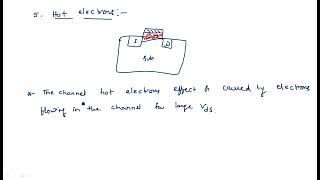 5. Hot electrons:-
S
D
Sub
The channel hot electrons effect is caused by electrons
flowing in the channel for large Vds.